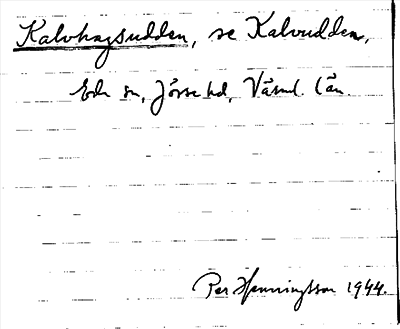 Kalvhagsudden, se Kalvudden,
Eda sn, Jösse hd, Värml. län.
Per Henningsson 1944.